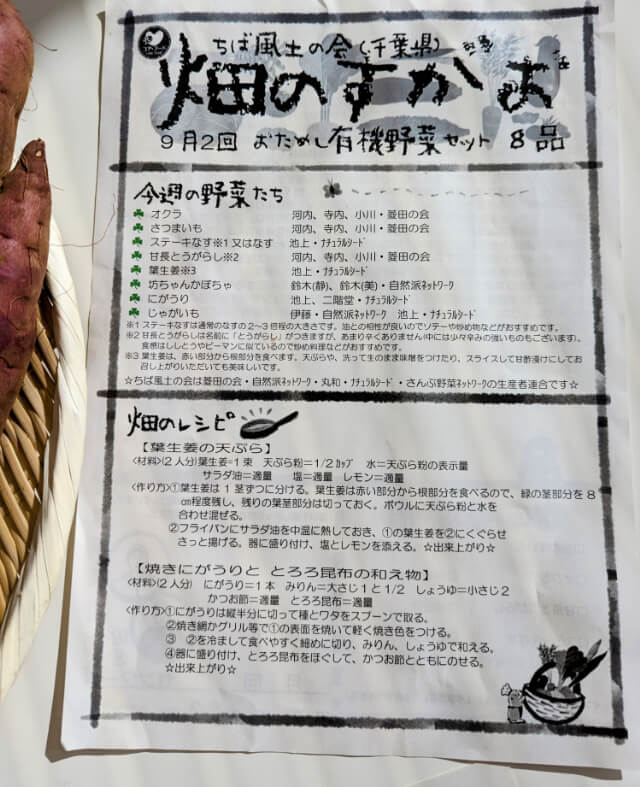 ちば風土の会(千葉県)
畑のすがお
9月2回 おためし有機野菜セット 8品
今週の野菜たち
オクラ 河内、寺内、小川・菱田の会
さつまいも 河内、寺内、小川・菱田の会
ステーキなす※1又はなす 池上・ナチュラルシード
甘長とうがらし※2 河内、寺内、小川・菱田の会
葉生姜※3 池上・ナチュラルシード
坊ちゃんかぼちゃ 鈴木(静)、鈴木(美)・自然派ネットワーク
にがうり 池上、二階堂・ナチュラルシード
じゃがいも 伊藤・自然派ネットワーク 池上・ナチュラルシード
※1 ステーキなすは通常のなすの2~3倍程の大きさです。油との相性が良いのでソテーや炒め物などがおすすめです。
※2 甘長とうがらしは名前に「とうがらし」がつきますが、あまり辛くありません(中には少々辛みの強いものもございます)。
食感はししとうやピーマンに似ているので炒め料理などがおすすめです。
※3 葉生姜は、赤い部分から根部分を食べます。天ぷらや、洗って生のまま味噌をつけたり、スライスして甘酢漬けにしてお
召し上がりいただいても美味しいです。
☆ちば風土の会は菱田の会・自然派ネットワーク・丸和・ナチュラルシード・さんぶ野菜ネットワークの生産者連合です☆
畑のレシピ
【葉生姜の天ぷら】
<材料>(2人分)葉生姜=1束 天ぷら粉=1/2カップ 水=天ぷら粉の表示量
サラダ油=適量 塩=適量 レモン=適量
<作り方>①葉生姜は1茎ずつに分ける。葉生姜は赤い部分から根部分を食べるので、緑の茎部分を8
㎝程度残し、残りの葉茎部分は切っておく。ボウルに天ぷら粉と水を
合わせ混ぜる。
②フライパンにサラダ油を中温に熱しておき、①の葉生姜を②にくぐらせ
さっと揚げる。器に盛り付け、塩とレモンを添える。☆出来上がり☆
【焼きにがうりと とろろ昆布の和え物】
<材料>(2人分) にがうり=1本 みりん=大さじ1と1/2 しょうゆ=小さじ2
かつお節=適量 とろろ昆布=適量
<作り方>①にがうりは縦半分に切って種とワタをスプーンで取る。
②焼き網かグリル等で①の表面を焼いて軽く焼き色をつける。
③ ②を冷まして食べやすく細めに切り、みりん、しょうゆで和える。
④器に盛り付け、とろろ昆布をほぐして、かつお節とともにのせる。
☆出来上がり☆